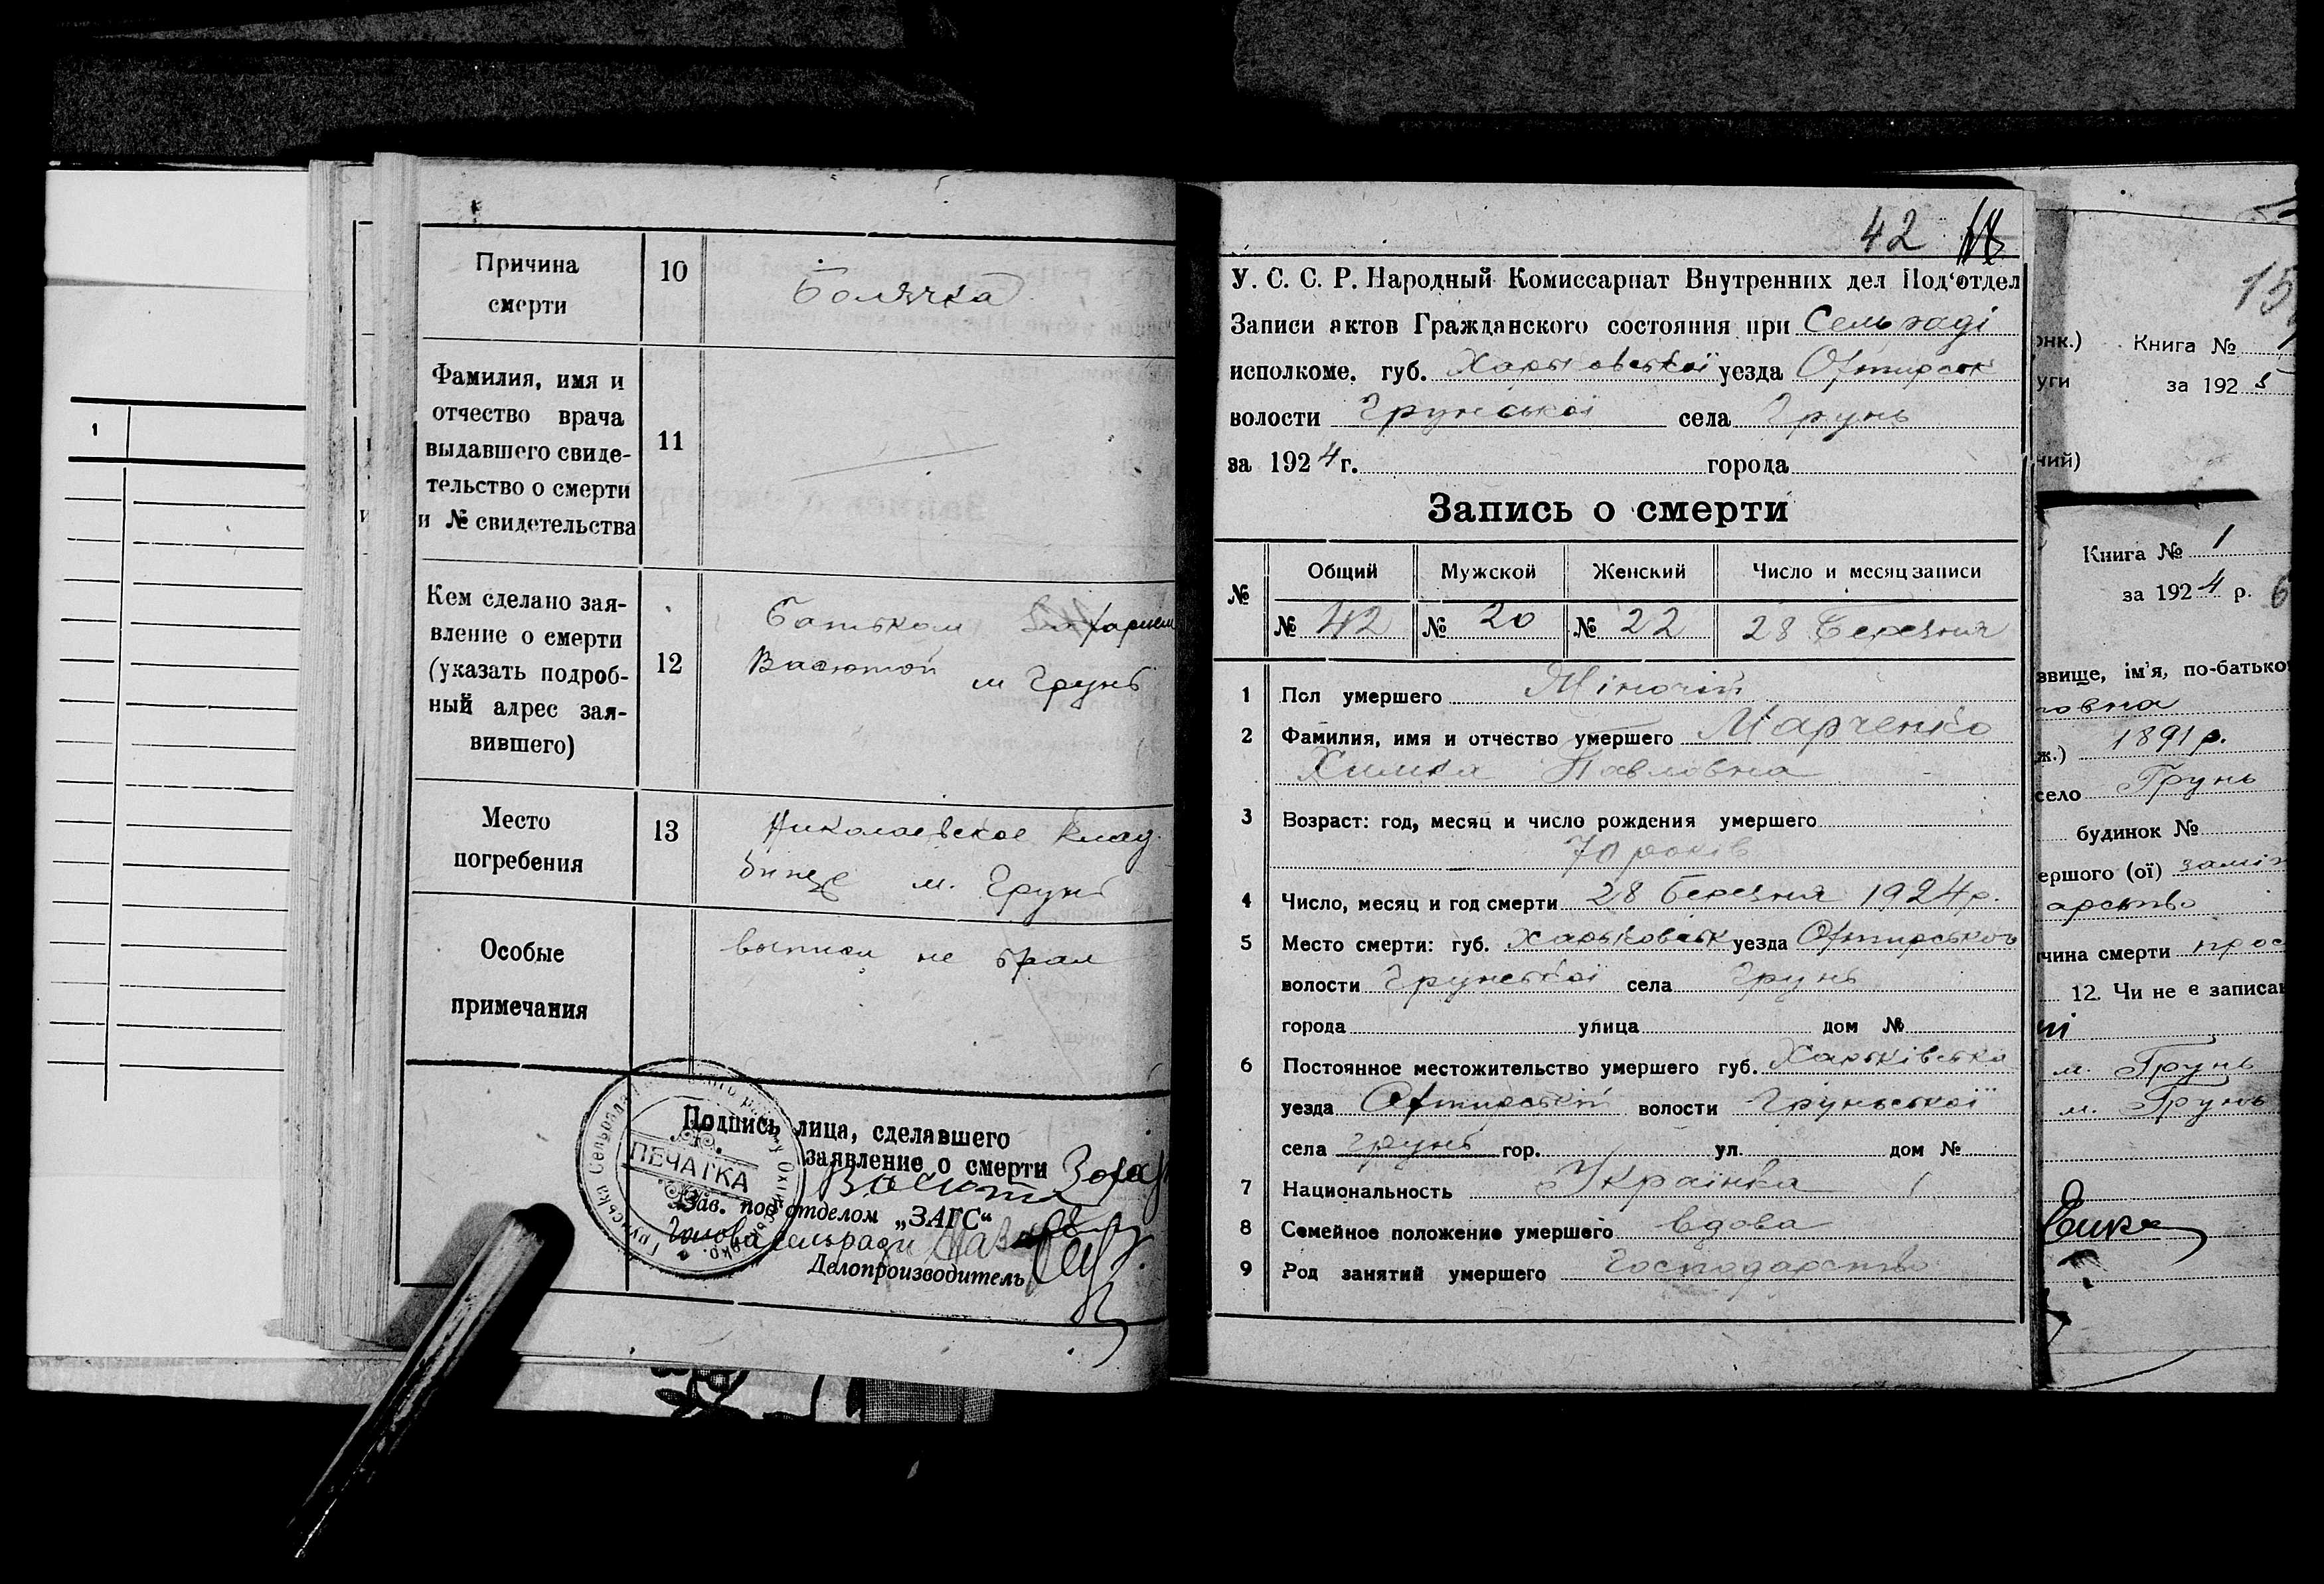 1
Причина
смерти
10
Болячка
Фамилия, имя и
отчество врача
выдавшего свиде-
тельство о смерти
и № свидетельства
11
Кем сделано зая-
вление о смерти
(указать подроб-
ный адрес зая-
вившего)
12
Батьком Захарием
Васютой м Грунь
Место
погребения
13
Николаевское клад
бище м. Грунь
Особые
примечания
выписи не брал
Подпись лица, сделавшего
заявление о смерти
Васюта Захар
Зав. под'отделом „ЗАГС“
Голова сельради
Делопроизводитель
ПЕЧАТКА
Грунська Сельрада
42
У. С. С. Р. Народный Комиссариат Внутренних дел Под‘отдел
Записи актов Гражданского состояния при Сельраді
исполкоме. губ. Харьковської уезда Охтирськ
волости Грунської села Грунь
за 1924 г. города
Запись о смерти
№ Общий Мужской Женский Число и месяц записи
№ 42 № 20 № 22 28 Березня
1 Пол умершего Жіночій
2 Фамилия, имя и отчество умершего Марченко
Химка Павловна
3 Возраст: год, месяц и число рождения умершего
70 років
4 Число, месяц и год смерти 28 березня 1924 р.
5 Место смерти: губ. Харьковськ уезда Охтирського
волости Грунської села Грунь
города улица дом №
6 Постоянное местожительство умершего губ. Харьківська
уезда Охтирській волости Груньської
села Грунь гор. ул. дом №
7 Национальность Українка
8 Семейное положение умершего вдова
9 Род занятий умершего Господарство
15
онк.) Книга № 1
уги за 1925
ний)
Книга № 1
за 1924 р. 6
звище, ім'я, по-батько
овна
ж.) 1891 р.
село Грунь
будинок №
ершого (ої) заміж
арство
чина смерти прос
12. Чи не є записан
м. Грунь
м. Грунь